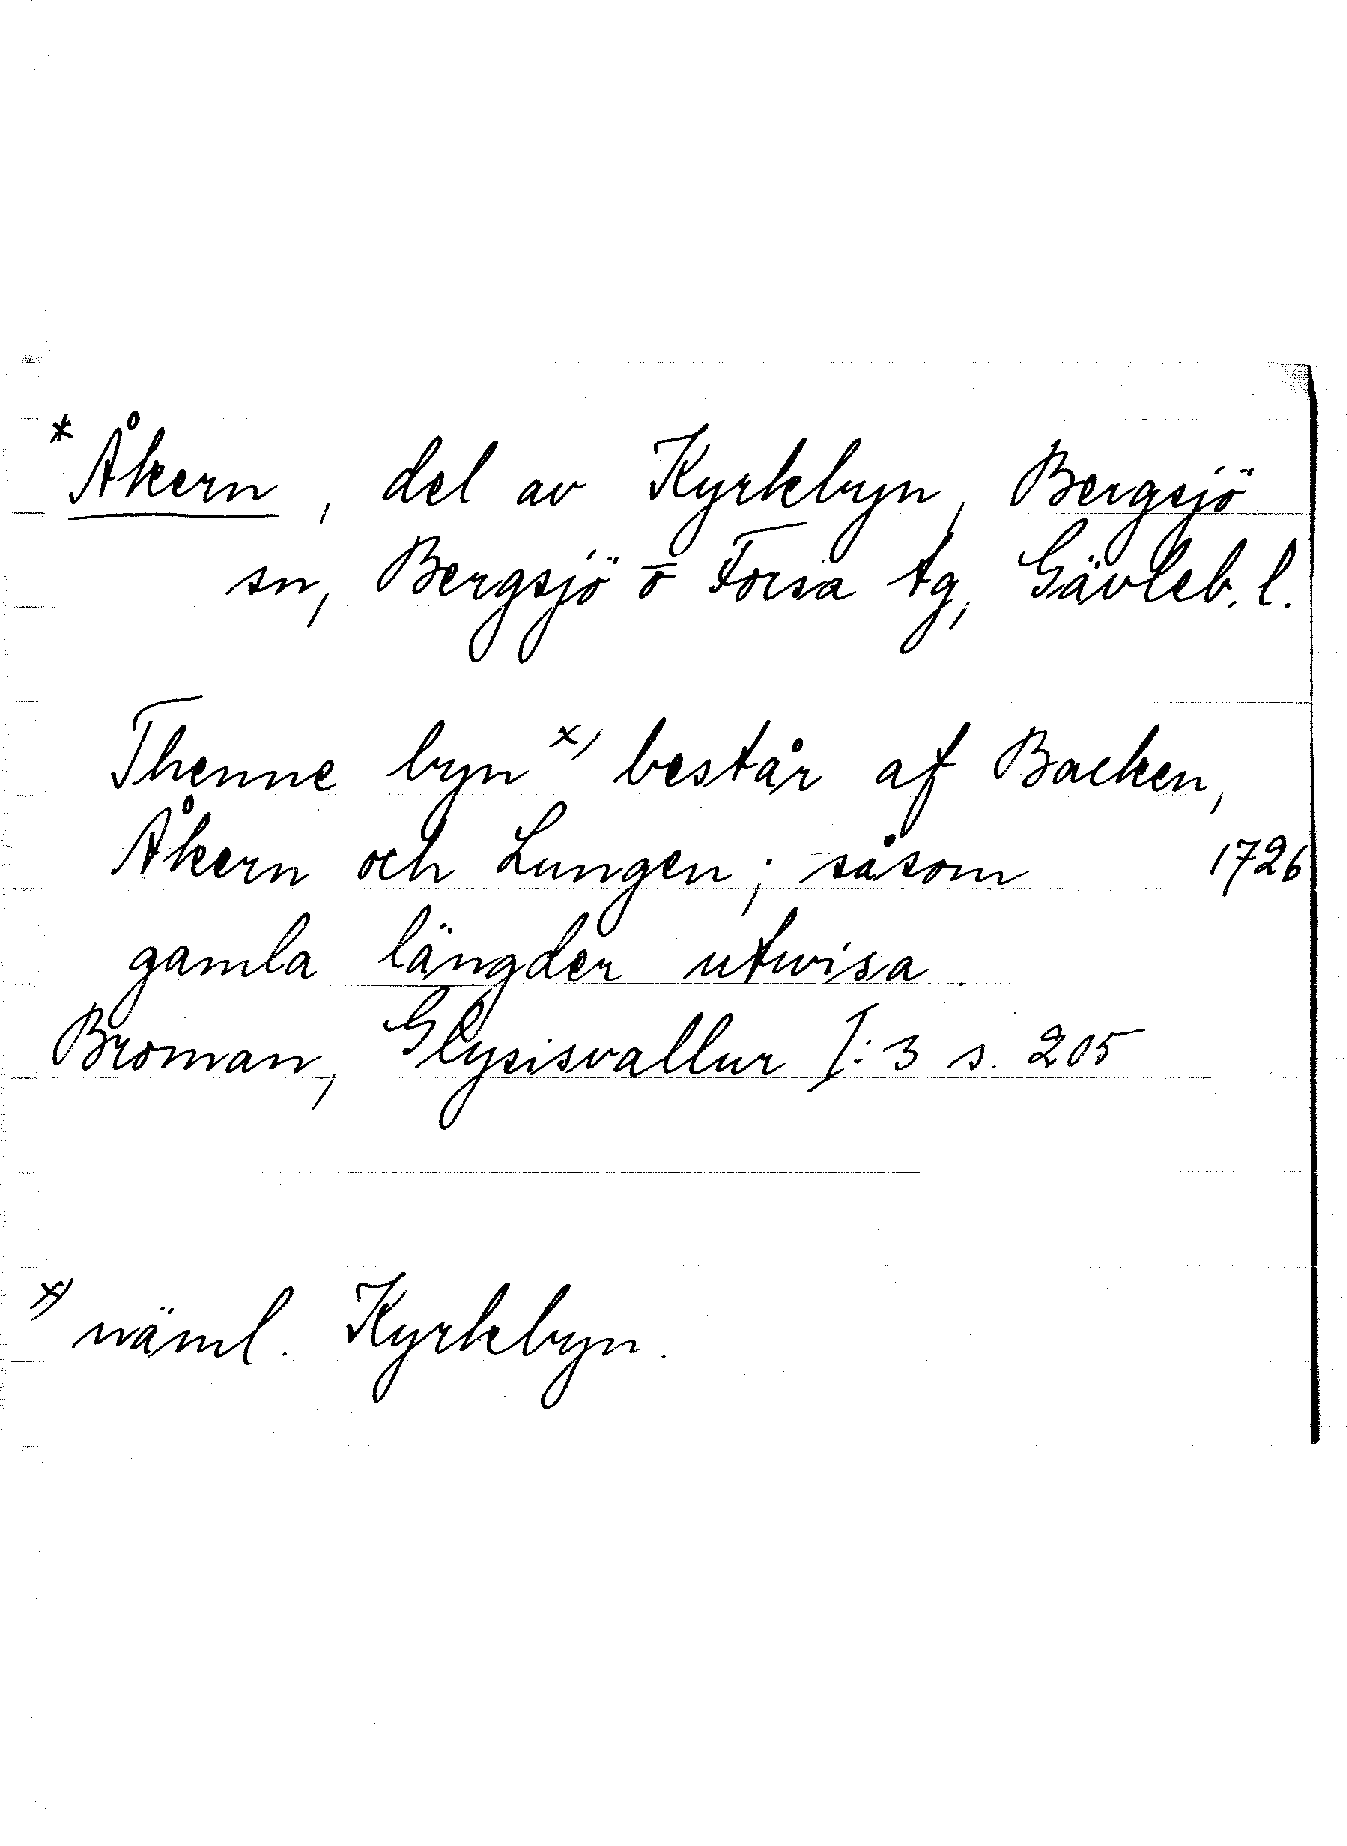 * Åkern, del av Kyrkbyn, Bergsjö
sn, Bergsjö o Forsa tg, Gävleb. l.
Thenne byn x) består af Backen,
Åkern och Lungen; såsom 1726
gamla längder utwisa.
Broman, Glysisvallur I:3 s. 205
x) näml. Kyrkbyn.